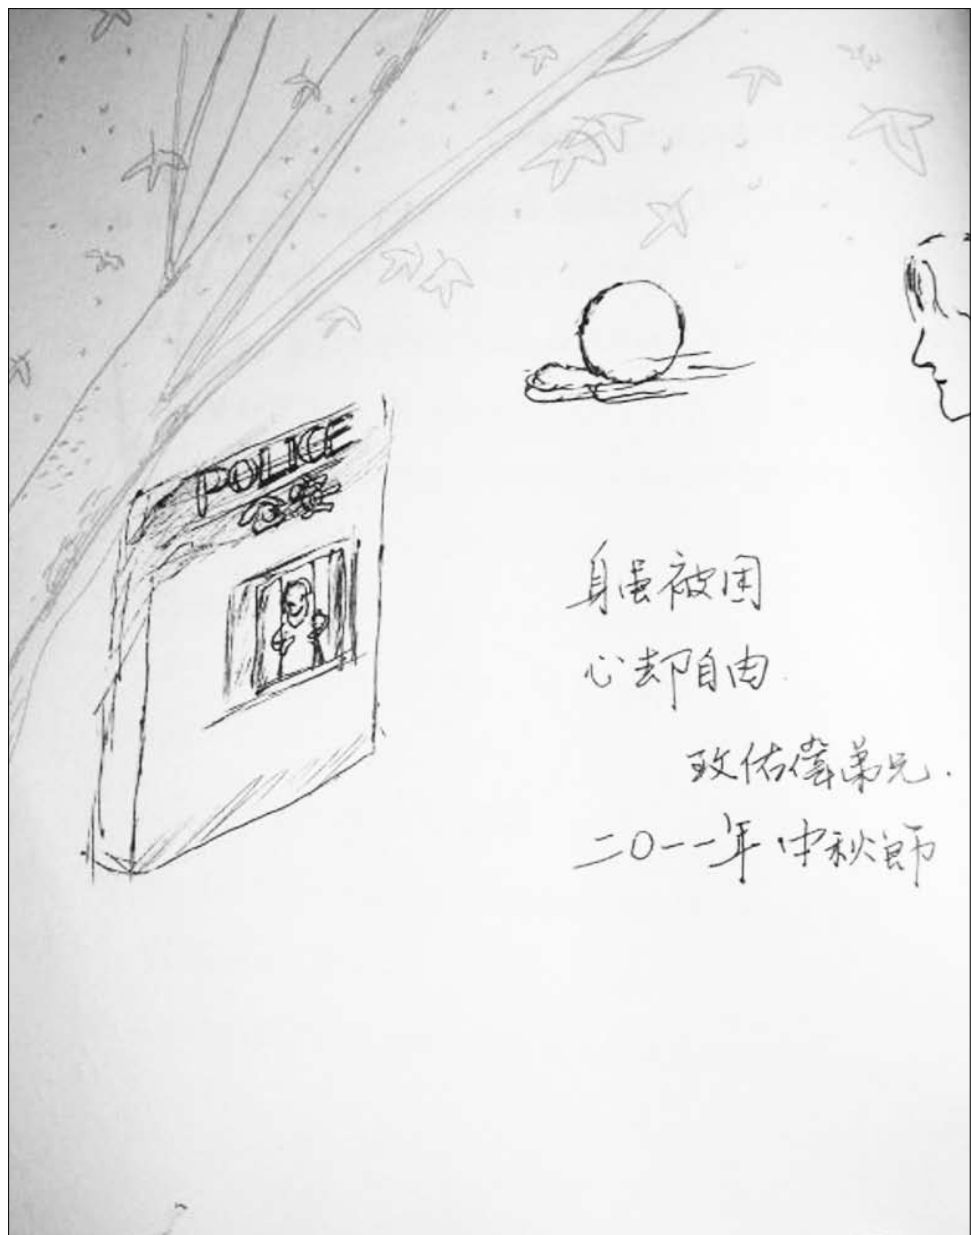 POLICE
公安
身虽被困
心却自由
致佑偉弟兄.
二〇一一年中秋節